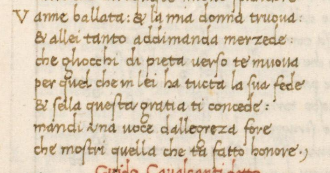 Vanne ballata: & la mia donna truova:
& allei tanto addimanda merzede:
che gliocchi di pieta verso te muova
per quel che in lei ha tucta la sua fede
& sella questa gratia ti concede:
mandi una voce dallegreza fore
che mostri quella che tha fatto honore.
Guido Cavalcanti detto